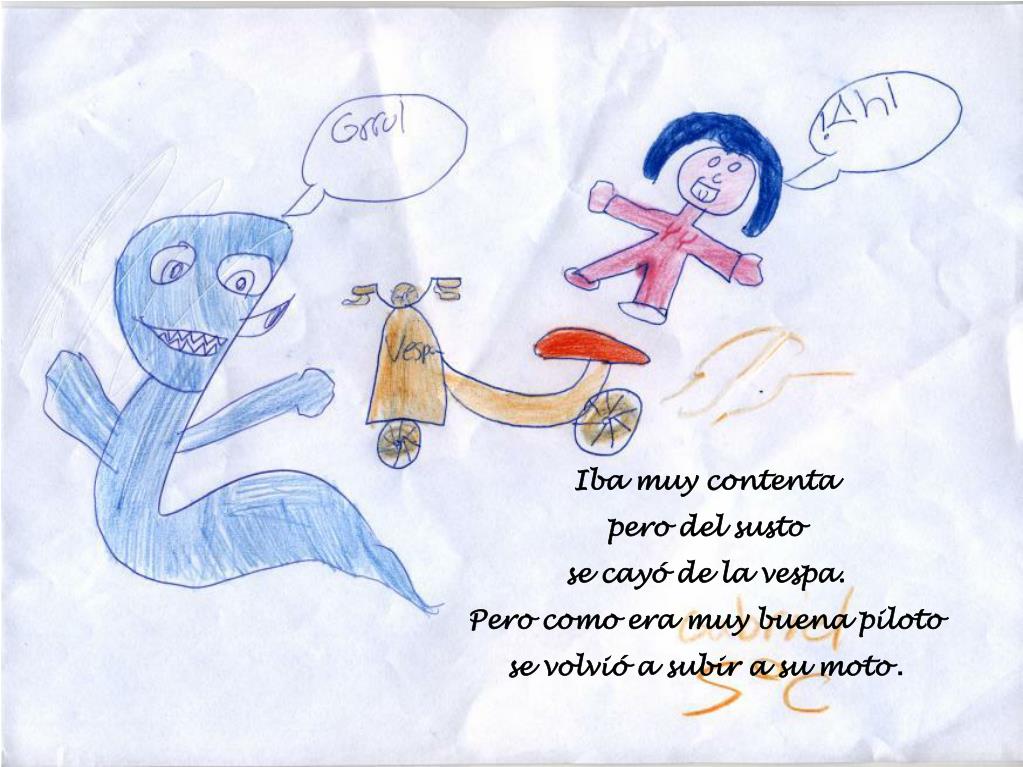 Grrul
¡Ah!
Vespa
Iba muy contenta
pero del susto
se cayó de la vespa.
Pero como era muy buena piloto
se volvió a subir a su moto.
Gabriel
5ºC